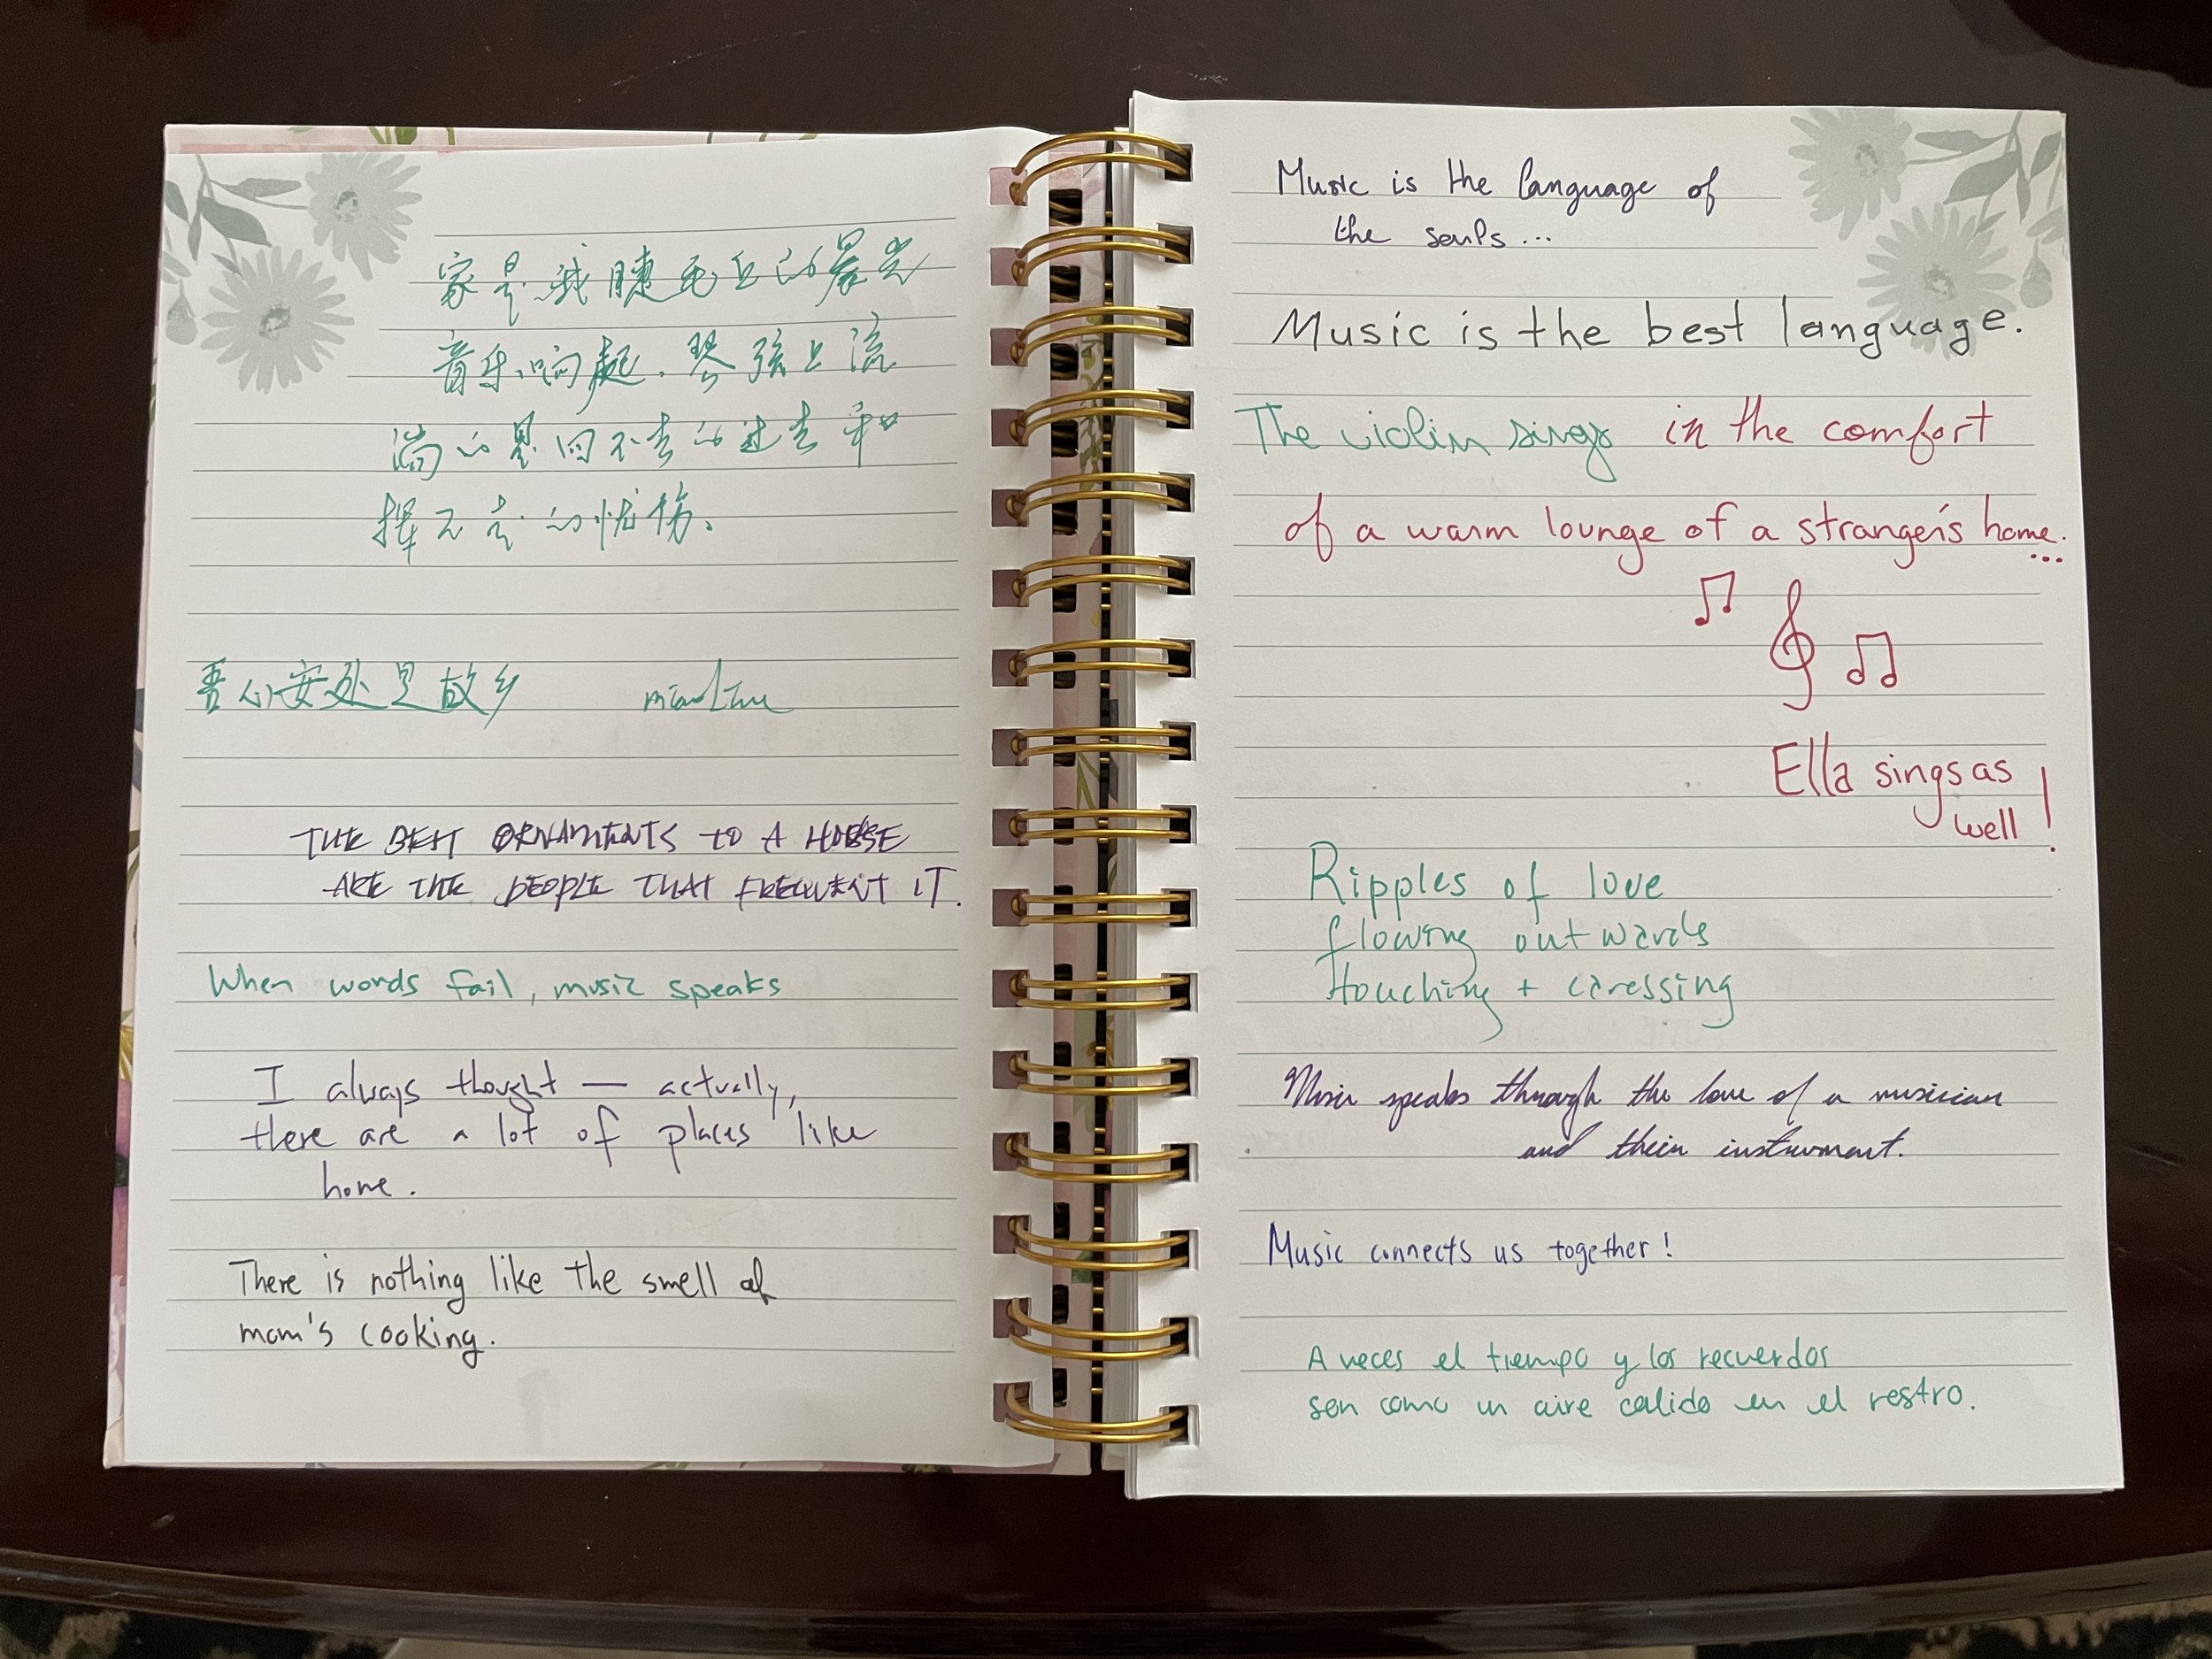 家是我睫毛上的晨光
音乐响起,琴弦上流
淌的是回不去的过去和
挥不去的忧伤。
吾心安处是故乡
THE BEST ORNAMENTS TO A HOUSE
ARE THE PEOPLE THAT FREQUENT IT.
When words fail, music speaks
I always thought — actually,
there are a lot of places like
home.
There is nothing like the smell of
mom's cooking.
Music is the language of
the souls...
Music is the best language.
The violin sings in the comfort
of a warm lounge of a stranger's home...
Ella sings as
well!
Ripples of love
flowing outwards
touching + caressing
Music speaks through the love of a musician
and their instrument.
Music connects us together!
A veces el tiempo y los recuerdos
son como un aire calido en el rostro.